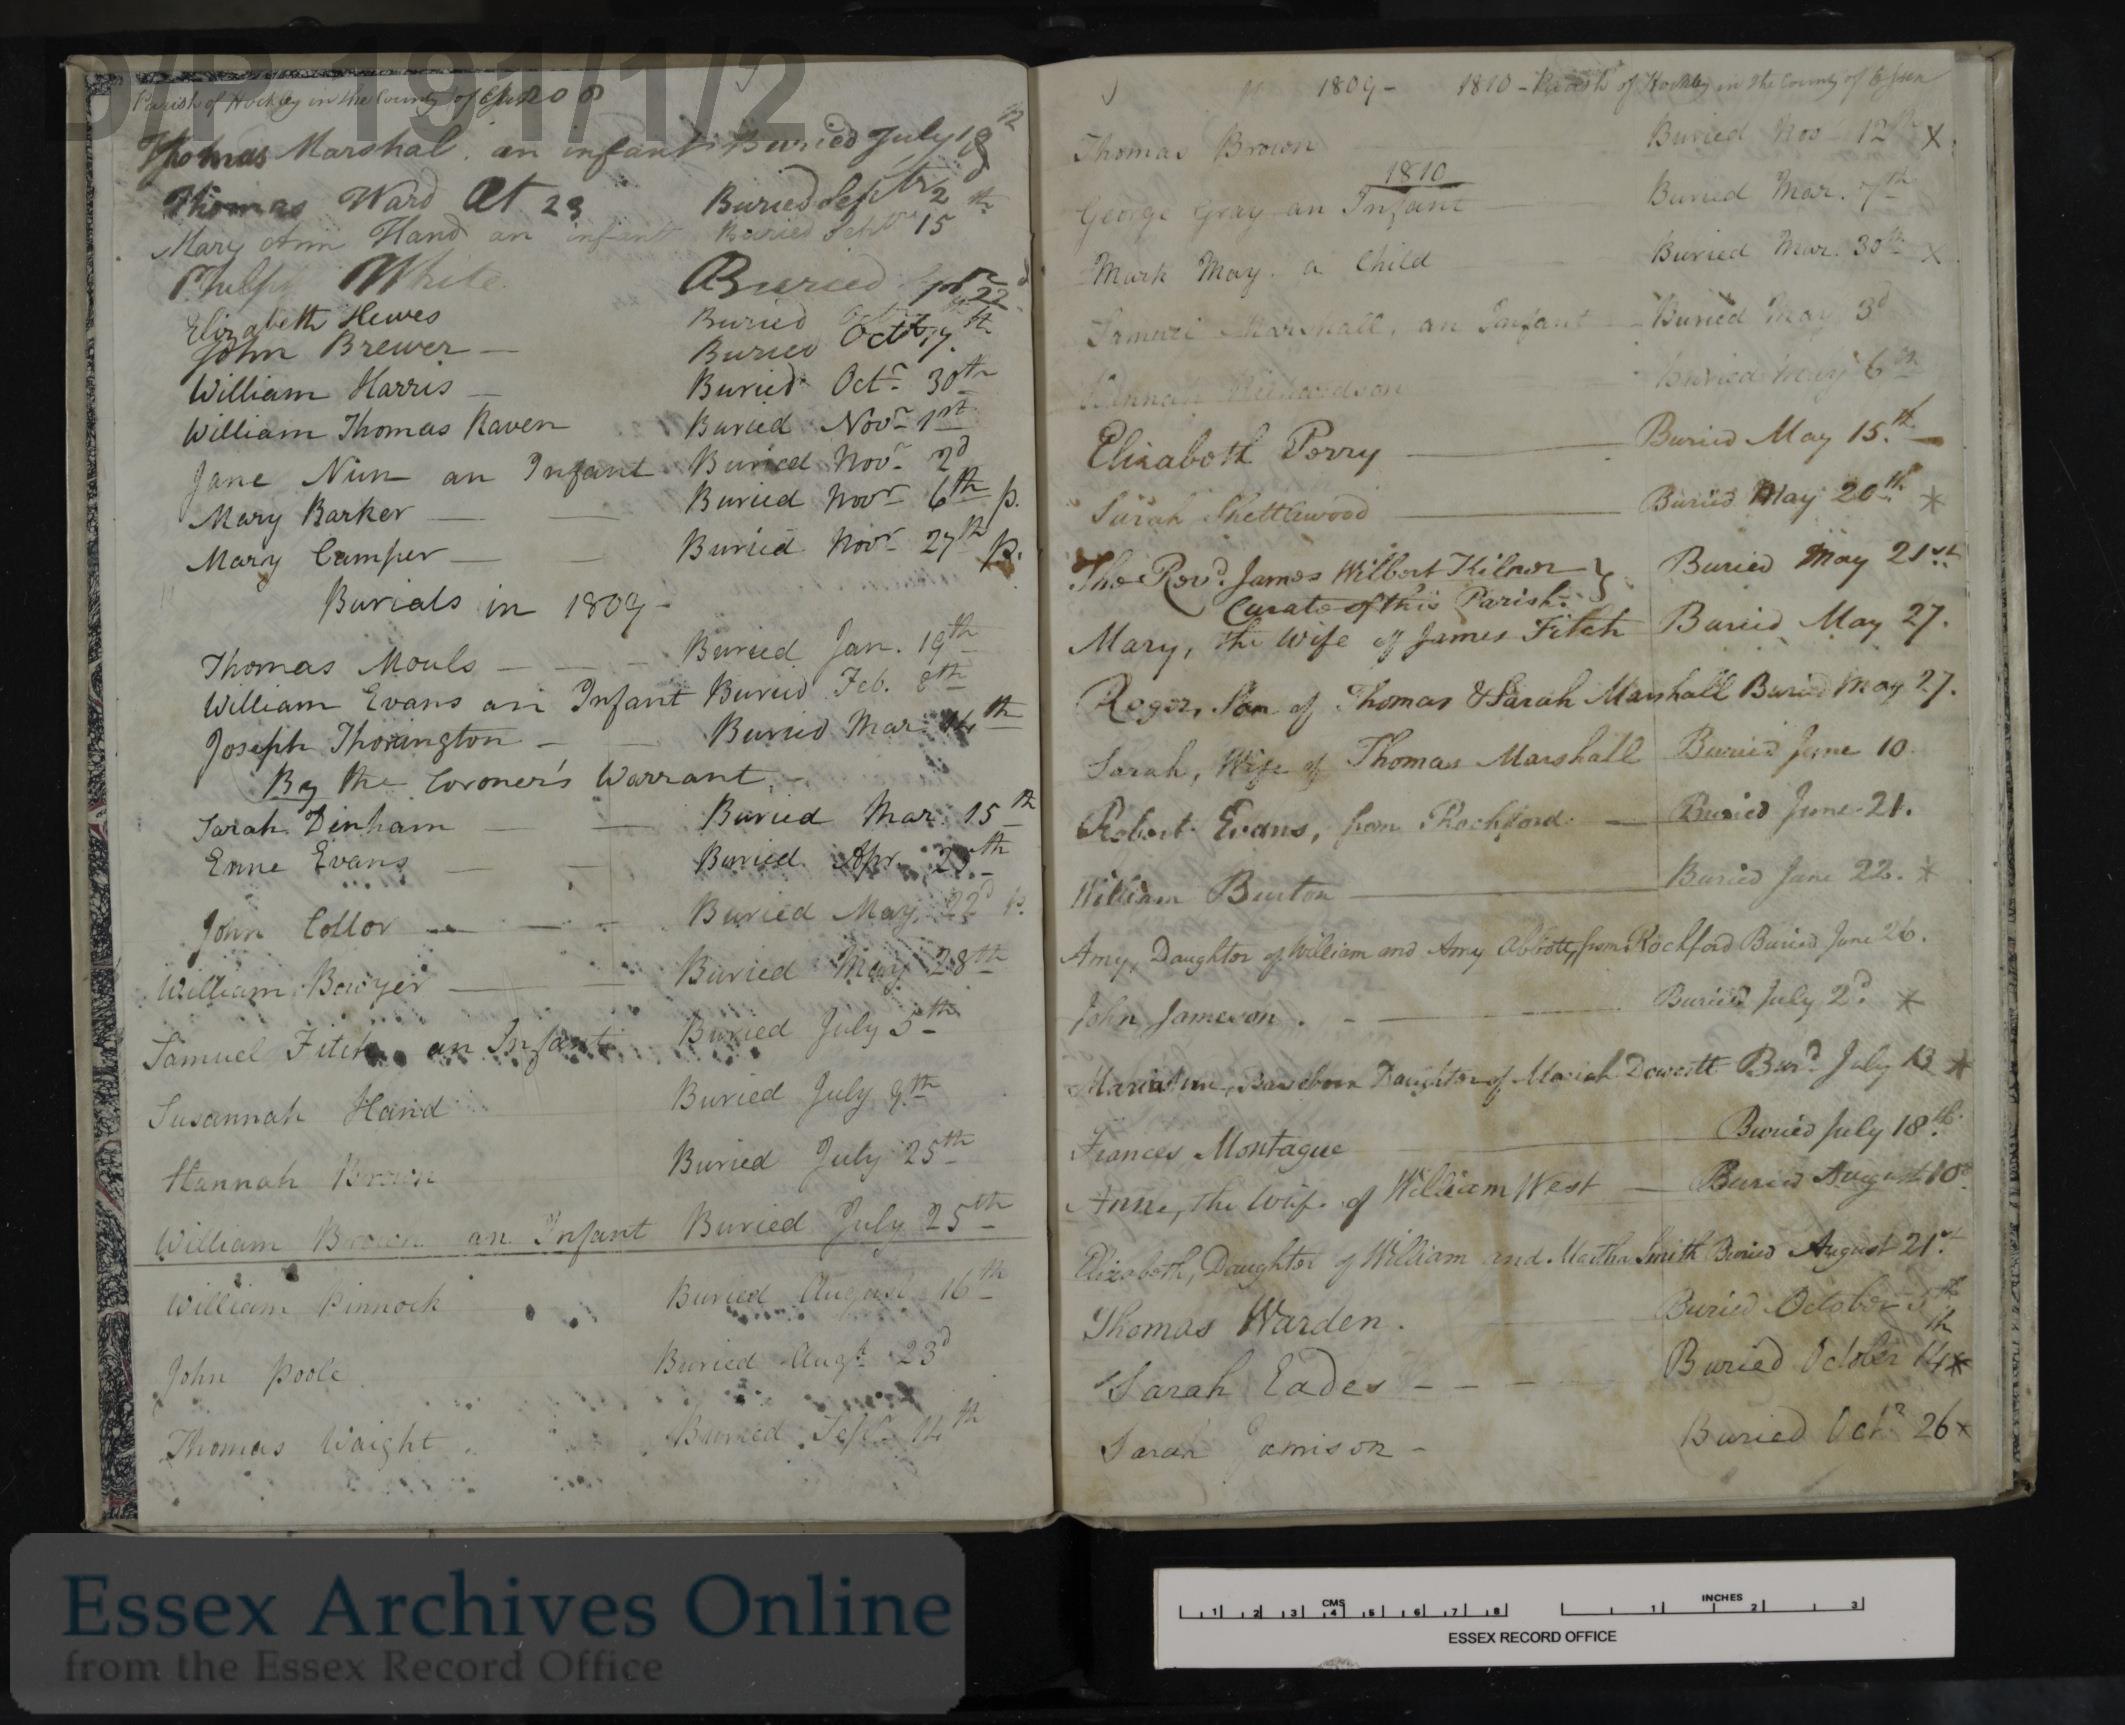 D/P 191/1/2
Parish of Hockley in the County of Essex 1808
Thomas Marshal an infant Buried July 18th
Thomas Ward At 23 Buried Septbr 2d
Mary Ann Hand an infant Buried Septr 15th
White Buried 22d
Elizabeth Hewes Buried
John Brewer — Buried Octbr 7th
William Harris — Buried Octr 30th
William Thomas Raven Buried Novr 1st
Jane Nun an Infant Buried Novr 2d
Mary Barker — — Buried Novr 6th p.
Mary Camper — — Buried Novr 27th p.
Burials in 1809 -
Thomas Mouls — — — Buried Jan. 19th
William Evans an Infant Buried Feb. 8th
Joseph Thorington — — Buried Mar. 14th
By the Coroner's Warrant.
Sarah Denham — — Buried Mar. 15th
Enne Evans — — Buried Apr. 25th
John Collor — — — Buried May 22d p.
William Bowyer — — Buried May 28th
Samuel Fitch an Infant Buried July 5th
Susannah Hand Buried July 9th
Hannah Brown Buried July 25th
William Brown an Infant Buried July 25th
William Pinnock Buried August 16th
John Poole Buried Augt 23d
Thomas Waight Buried Septr 14th
1809 - 1810 - Parish of Hockley in the County of Essex
Thomas Brown Buried Novr 12th X
1810
George Gray an Infant — Buried Mar. 7th
Mark May a Child — Buried Mar. 30th X
Marshall, an Infant — Buried May 3d
Hannah Richardson Buried May 6th
Elizabeth Perry — Buried May 15th
Sarah Shettlewood — Buried May 20th *
The Revd. James Wilbert Kilner } Buried May 21st
Curate of this Parish.
Mary, the Wife of James Fitch Buried May 27.
Roger, Son of Thomas & Sarah Marshall Buried May 27.
Sarah, Wife of Thomas Marshall Buried June 10.
Robert Evans, from Rochford — Buried June 21.
William Burton — Buried June 22. *
Amy, Daughter of William and Amy Abbott, from Rochford Buried June 26.
John Jameson . - — Buried July 2d. *
Baseborn Daughter of Mariah Dowsett Burd. July 13 *
Frances Montague — Buried July 18th.
Anne, the Wife of William West — Buried August 10th
Elizabeth, Daughter of William and Martha Smith Buried August 21st
Thomas Warden. Buried October 5th
Sarah Eades - - - Buried October 14th *
Sarah Jamison - Buried Octr 26 *
Essex Archives Online
from the Essex Record Office
CMS
1 2 3 4 5 6 7 8
INCHES
1 2 3
ESSEX RECORD OFFICE